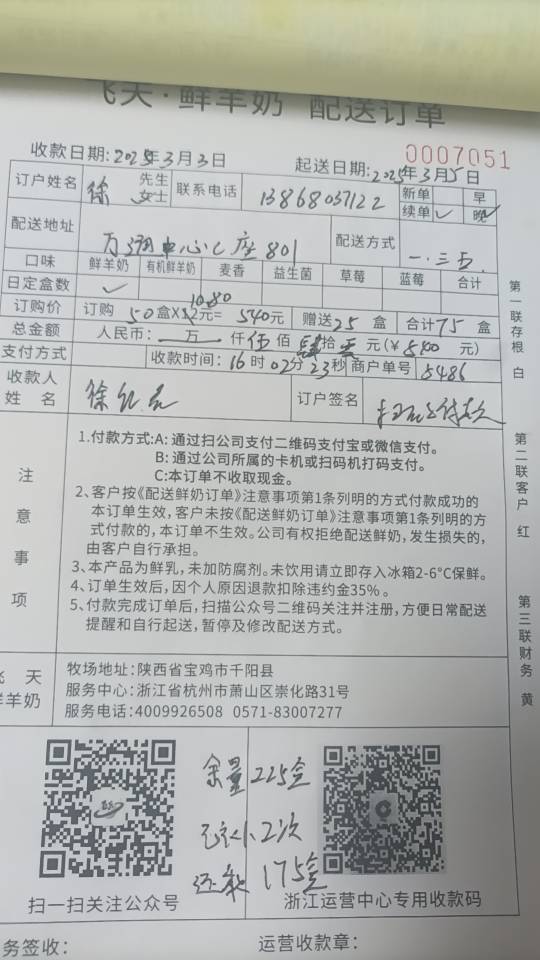 飞天·鲜羊奶 配送订单
0007051
收款日期:2025年3月3日 起送日期:2025年3月5日
订户姓名 徐 先生 女士 联系电话 13868037122 新单 早
续单 ✓ 晚 ✓
配送地址 中心C座801 配送方式 一.三.五.
口味 鲜羊奶 有机鲜羊奶 麦香 益生菌 草莓 蓝莓 合计
日定盒数 ✓
10.80
订购价 订购 50盒X12元= 540元 赠送25盒 合计75盒
总金额 人民币: 万 仟 伍 佰 肆 拾 零 元(¥540元)
支付方式 收款时间: 16时02分23秒 商户单号 5486
收款人姓名 徐 订户签名 扫码付款
注意事项
1.付款方式:A: 通过扫公司支付二维码支付宝或微信支付。
B: 通过公司所属的卡机或扫码机打码支付。
C:本订单不收取现金。
2、客户按《配送鲜奶订单》注意事项第1条列明的方式付款成功的
本订单生效，客户未按《配送鲜奶订单》注意事项第1条列明的方
式付款的，本订单不生效。公司有权拒绝配送鲜奶，发生损失的，
由客户自行承担。
3、本产品为鲜乳，未加防腐剂。未饮用请立即存入冰箱2-6°C保鲜。
4、订单生效后，因个人原因退款扣除违约金35%。
5、付款完成订单后，扫描公众号二维码关注并注册，方便日常配送
提醒和自行起送，暂停及修改配送方式。
第一联存根 白
第二联客户 红
第三联财务 黄
飞天
鲜羊奶
牧场地址: 陕西省宝鸡市千阳县
服务中心: 浙江省杭州市萧山区崇化路31号
服务电话: 4009926508 0571-83007277
余量225盒
2次
还剩175盒
扫一扫关注公众号 浙江运营中心专用收款码
务签收: 运营收款章: